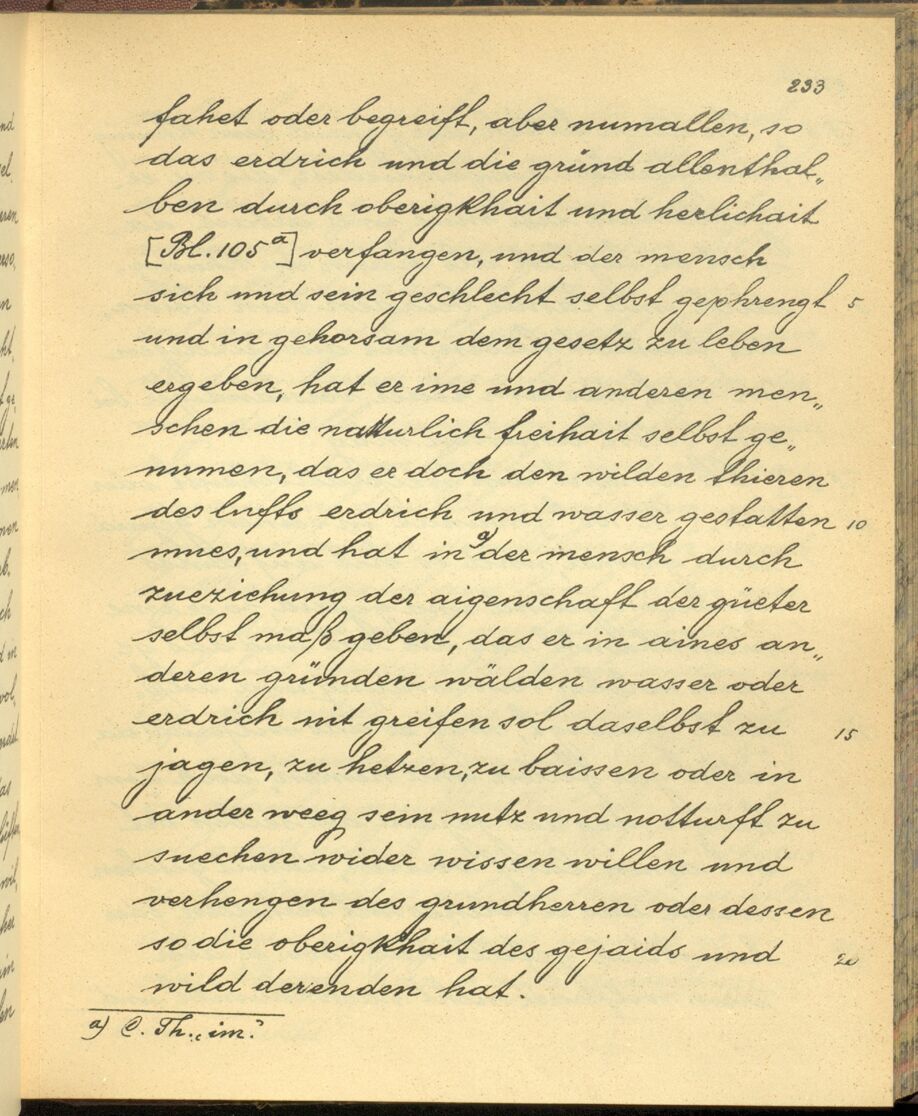 233
fahet oder begreift, aber numallen, so
das erdrich und die gründ allenthal„
ben durch oberigkhait und herlichait
[Bl. 105a] verfangen, und der mensch
sich und sein geschlecht selbst gephrengt 5
und in gehorsam dem gesetz zu leben
ergeben, hat er ime und anderen men„
schen die natturlich freihait selbst ge„
numen, das er doch den wilden thieren
des lufts erdrich und wasser gestatten 10
mues, und hat in a) der mensch durch
zueziehung der aigenschaft der güeter
selbst maß geben, das er in aines an„
deren gründen wälden wasser oder
erdrich nit greifen sol daselbst zu 15
jagen, zu hetzen, zu baissen oder in
ander weeg sein nutz und notturft zu
suechen wider wissen willen und
verhengen des grundherren oder dessen
so die oberigkhait des gejaids und 20
wild derenden hat.
a) C. Th. „im."